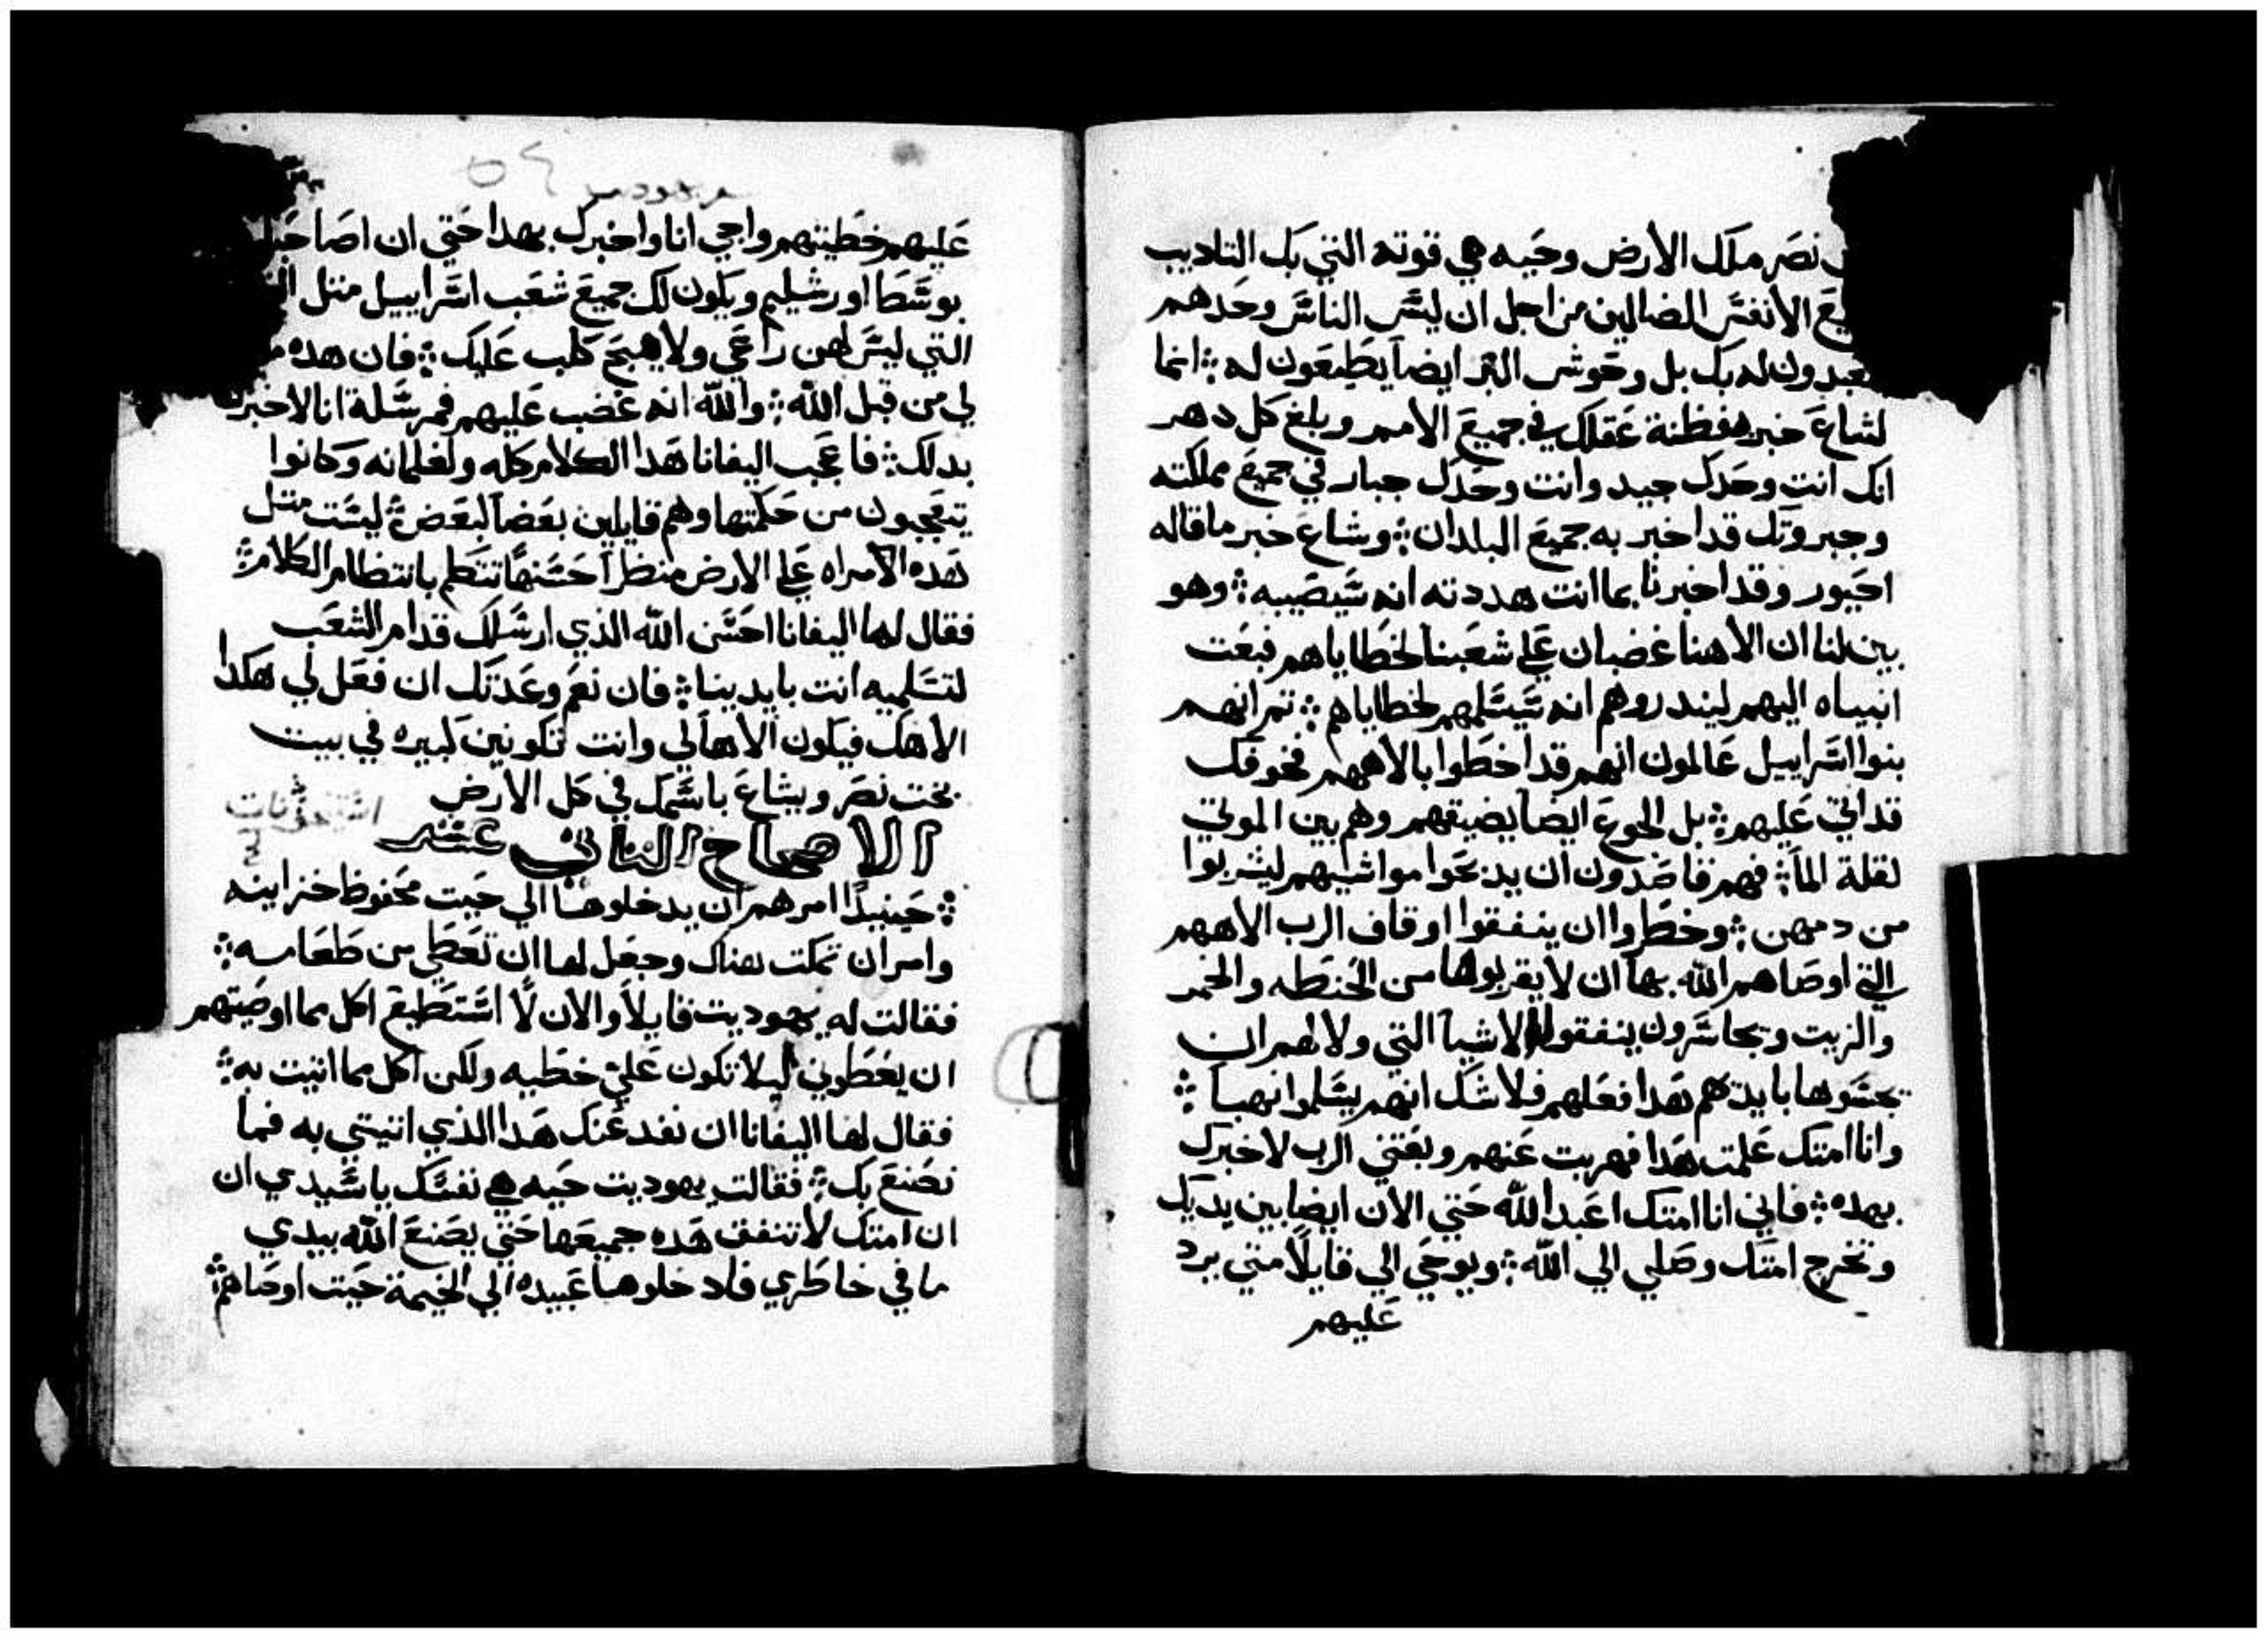 نصر ملك الارض وحيه هي قوته التي بك التاديب
يع الانفس الضالين من اجل ان ليس الناس وحدهم
يعبدون له بك بل وحوش البر ايضاً يطيعون له ܀ انما
لشاع خبر فطنة عقلك في جميع الامم وبلغ كل دهر
انك انت وحدك جيد وانت وحدك جبار في جميع مملكته
وجبروتك قد اخبر به جميع البلدان ܀ وشاع خبر ما قاله
احيور وقد اخبرنا بما انت هددته انه سيصيبه ܀ وهو
بين لنا ان الاهنا غضبان علي شعبنا لخطاياهم فبعت
انبياه اليهم ليندروهم انه سيسلمهم لخطاياهم ܀ تم انهم
بنوا اسراييل عالمون انهم قد اخطوا بالاههم فخوفك
قد اتي عليهم ܀ بل الجوع ايضاً يضيقهم وهم بين الموتي
لقلة الماً ܀ فهم قاصدون ان يدبحوا مواشيهم ليشربوا
من دمهن ܀ وخطروا ان ينفقوا اوقاف الرب الاههم
التي اوصاهم الله بها ان لا يقربوها من الحنطه والخمر
والزيت وتجاسرون ينفقوا الاشيا التي ولا لهم ان
يجسوها بايديهم هدا فعلهم فلا شك انهم يسلموا نهباً ܀
وانا امتك علمت هدا فهربت عنهم وبعتني الرب لاخبرك
بهده ܀ فاني انا امتك اعبد الله حتي الان ايضا بين يديك
وتخرج امتك وصلي الي الله ܀ ويوحي الي قايلاً متي يرد
عليهم
يهوديت ٥٤
عليهم خطيتهم واجي انا واخبرك بهدا حتي ان اصاحبك
بوسط اورشليم ويكون لك جميع شعب اسراييل متل
التي ليس لهن راعي ولا هيج كلب عليك ܀ فان هده
لي من قبل الله ܀ والله انه غضب عليهم فمرسلة انا لاخبرك
بدلك ܀ فاعجب اليفانا هدا الكلام كله ولغلمانه وكانوا
يتعجبون من حكمتها وهم قايلين بعضاً لبعض ܀ ليست متل
هده الامراه علي الارض منظراً حسنهاً تتكلم بانتظام الكلام ܀
فقال لها اليفانا احسن الله الذي ارسلك قدام الشعب
لتسلميه انت بايدينا ܀ فان نعم وعدتك ان فعل لي هكدا
الاهك فيكون الاهاً لي وانت تكونين كبيره في بيت
بخت نصر ويشاع باسمك في كل الارض
الاصحاح التاني عشر
܀ حينيداً امرهم ان يدخلوها الي حيت محفوظ خزاينه
وامر ان تمكت هناك وجعل لها ان تعطي من طعامه ܀
فقالت له يهوديت قايلاً والان لا استطيع اكل مما اوصيتهم
ان يعطوني ليلا تكون علي خطيه ولكن اكل مما اتيت به ܀
فقال لها اليفانا ان نفد عنك هدا الذي اتيتي به فما
نصنع بك ܀ فقالت يهوديت حيه هي نفسك يا سيدي ان
ان امتك لا تنفق هده جميعها حتي يصنع الله بيدي
ما في خاطري فادخلوها عبيده الي الخيمة حيت اوصاهم ܀